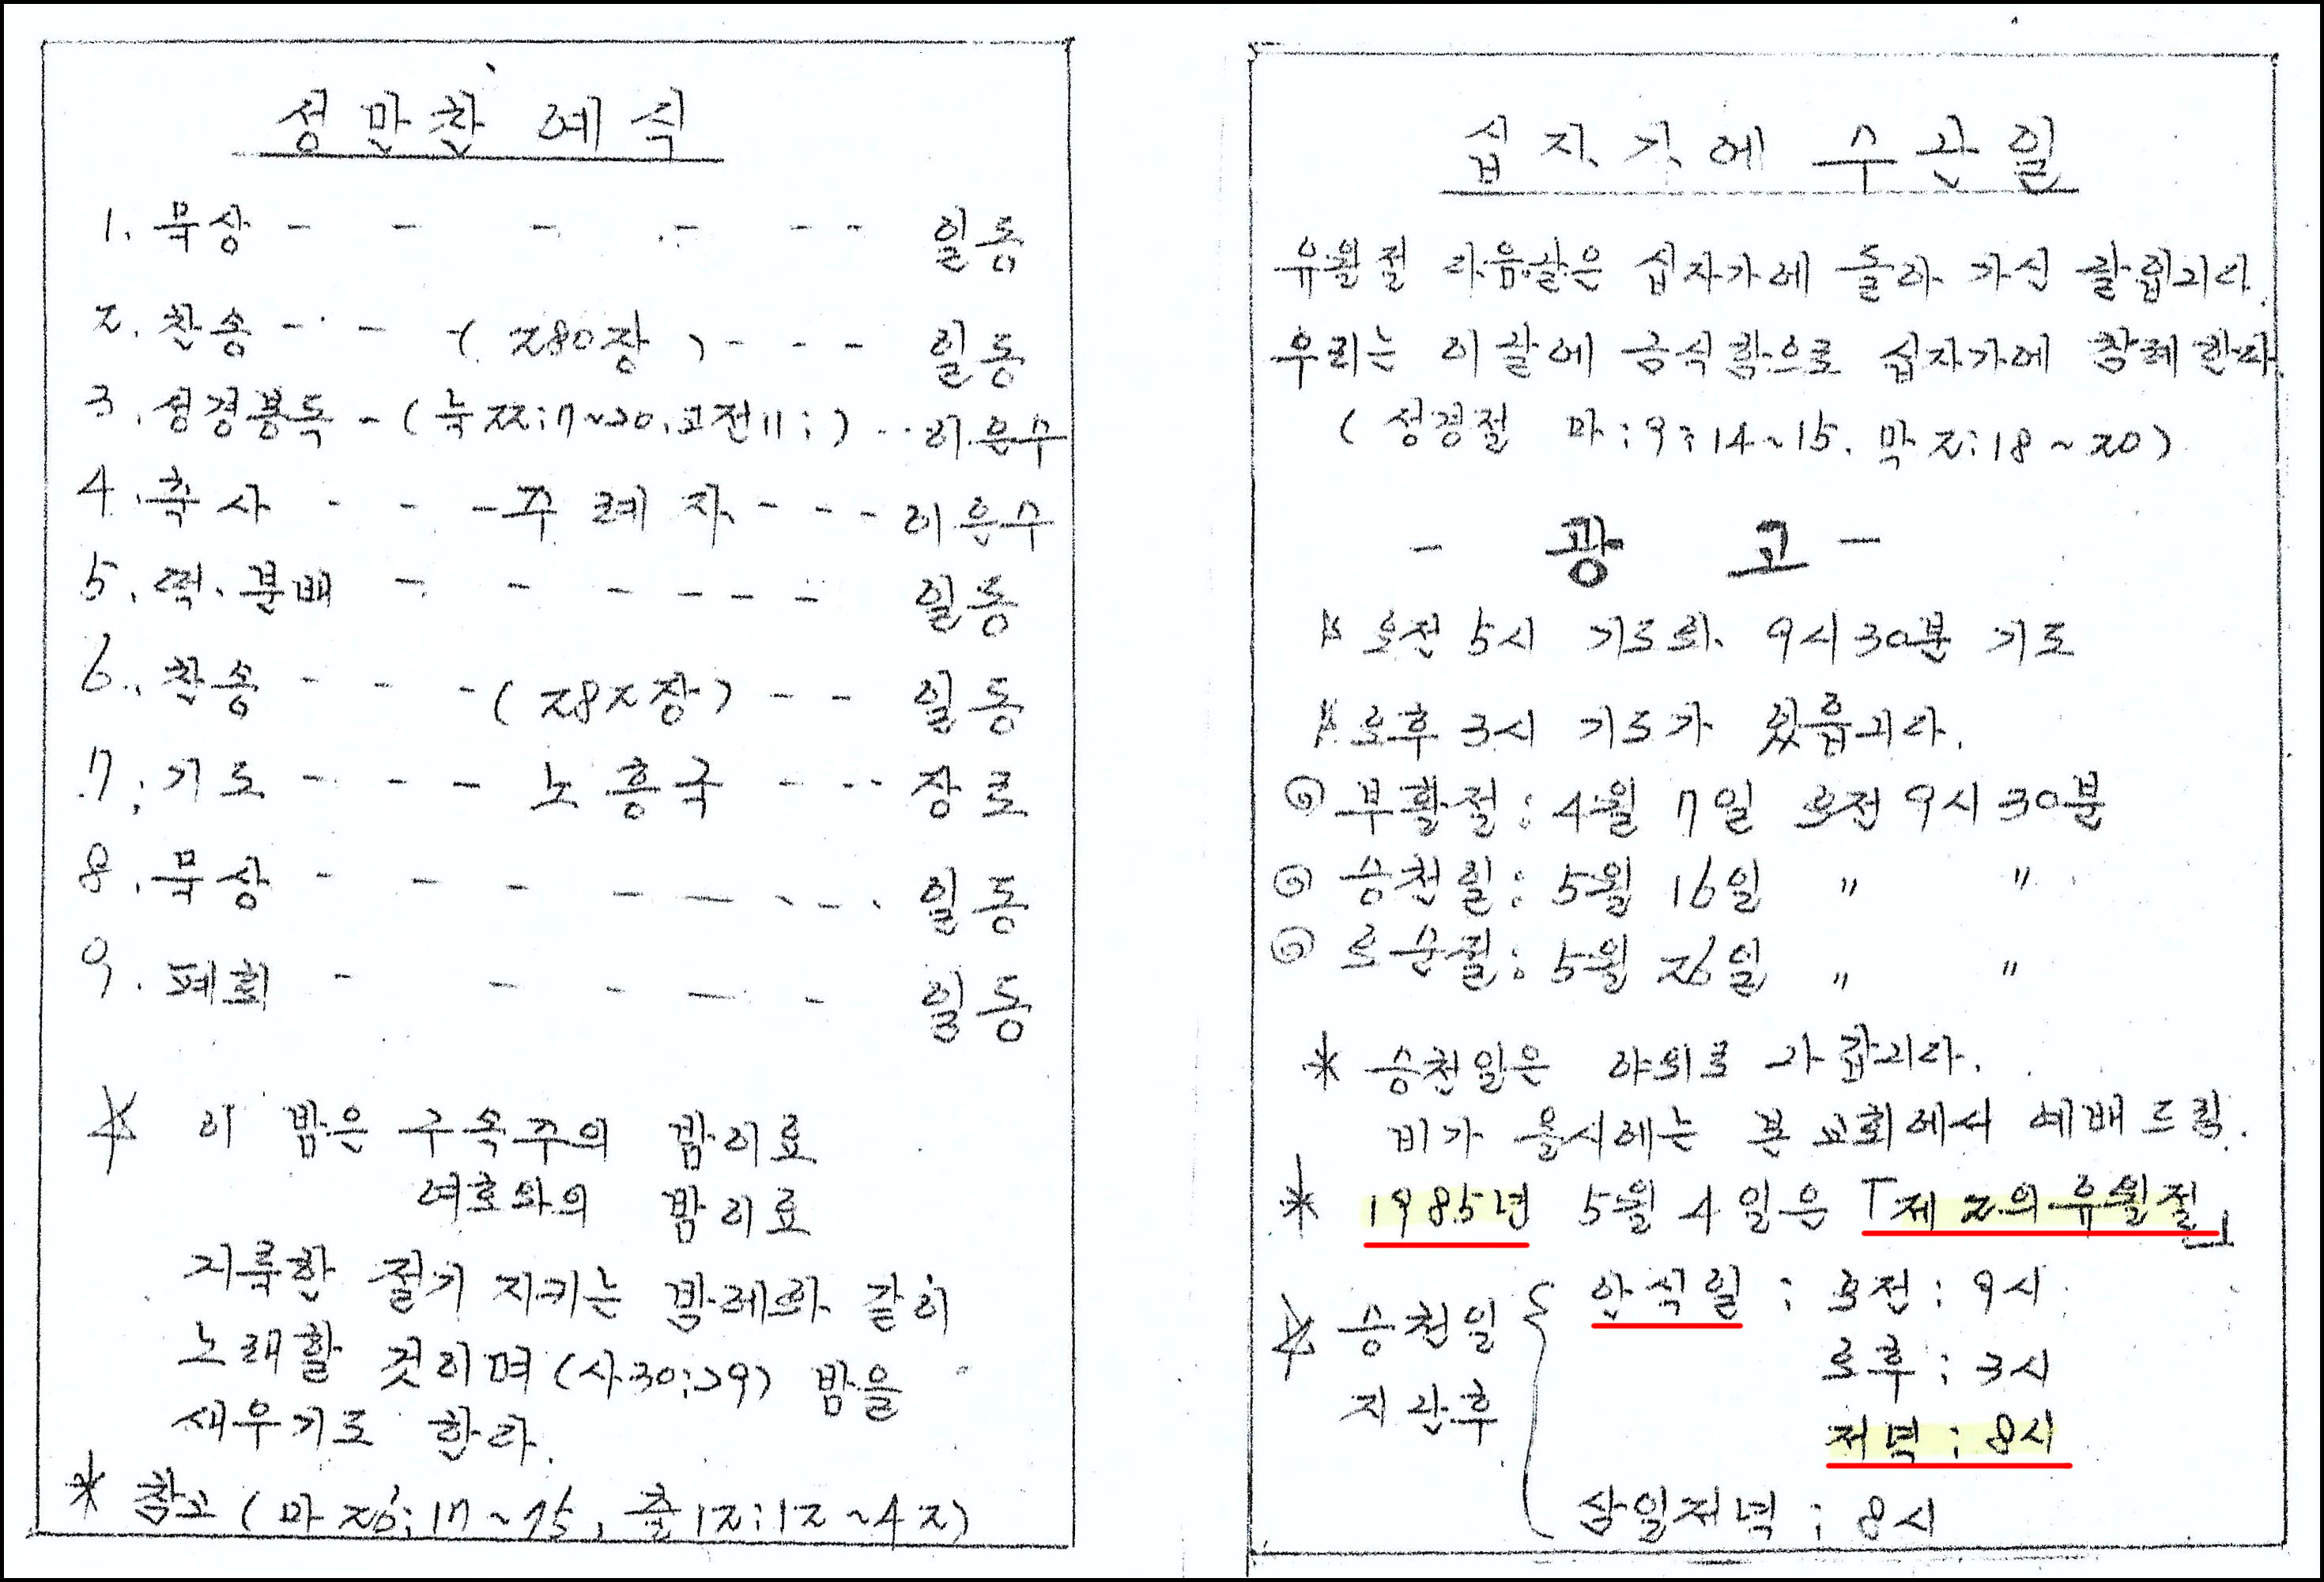 성만찬 예식
1. 묵상 - - - - - - 일동
2. 찬송 - - - ( 280장 ) - - - 일동
3. 성경봉독 - ( 눅 22:17~20, 고전 11: ) - - 이은수
4. 축사 - - - 주례자 - - - 이은수
5. 떡.분배 - - - - - - 일동
6. 찬송 - - - ( 282장 ) - - 일동
7. 기도 - - - 노흥국 - - - 장로
8. 묵상 - - - - - - - - 일동
9. 폐회 - - - - - 일동
* 이 밤은 구속주의 밤이요
여호와의 밤이요
지룩한 절기 지키는 밤에와 같이
노래할 것이며 (사30:29) 밤을
새우기로 한다.
* 참고 ( 마 26:17~75, 출 12:12~42)
십자가에 수난일
유월절 다음날은 십자가에 돌아 가신 날입니다.
우리는 이 날에 금식함으로 십자가에 참례한다.
( 성경절 마:9:14~15. 막 2:18~20)
- 광 고 -
* 오전 5시 기도회. 9시 30분 기도
* 오후 3시 기도가 있읍니다.
◎ 부활절 : 4월 7일 오전 9시 30분
◎ 승천일 : 5월 16일 〃 〃
◎ 오순절 : 5월 26일 〃 〃
* 승천일은 야외로 나갑니다.
비가 올시에는 본 교회에서 예배드림.
* 1985년 5월 4일은 「제 2의 유월절」
* 승천일 지난후 { 안식일 : 오전 : 9시
오후 : 3시
저녁 : 8시
삼일저녁 : 8시